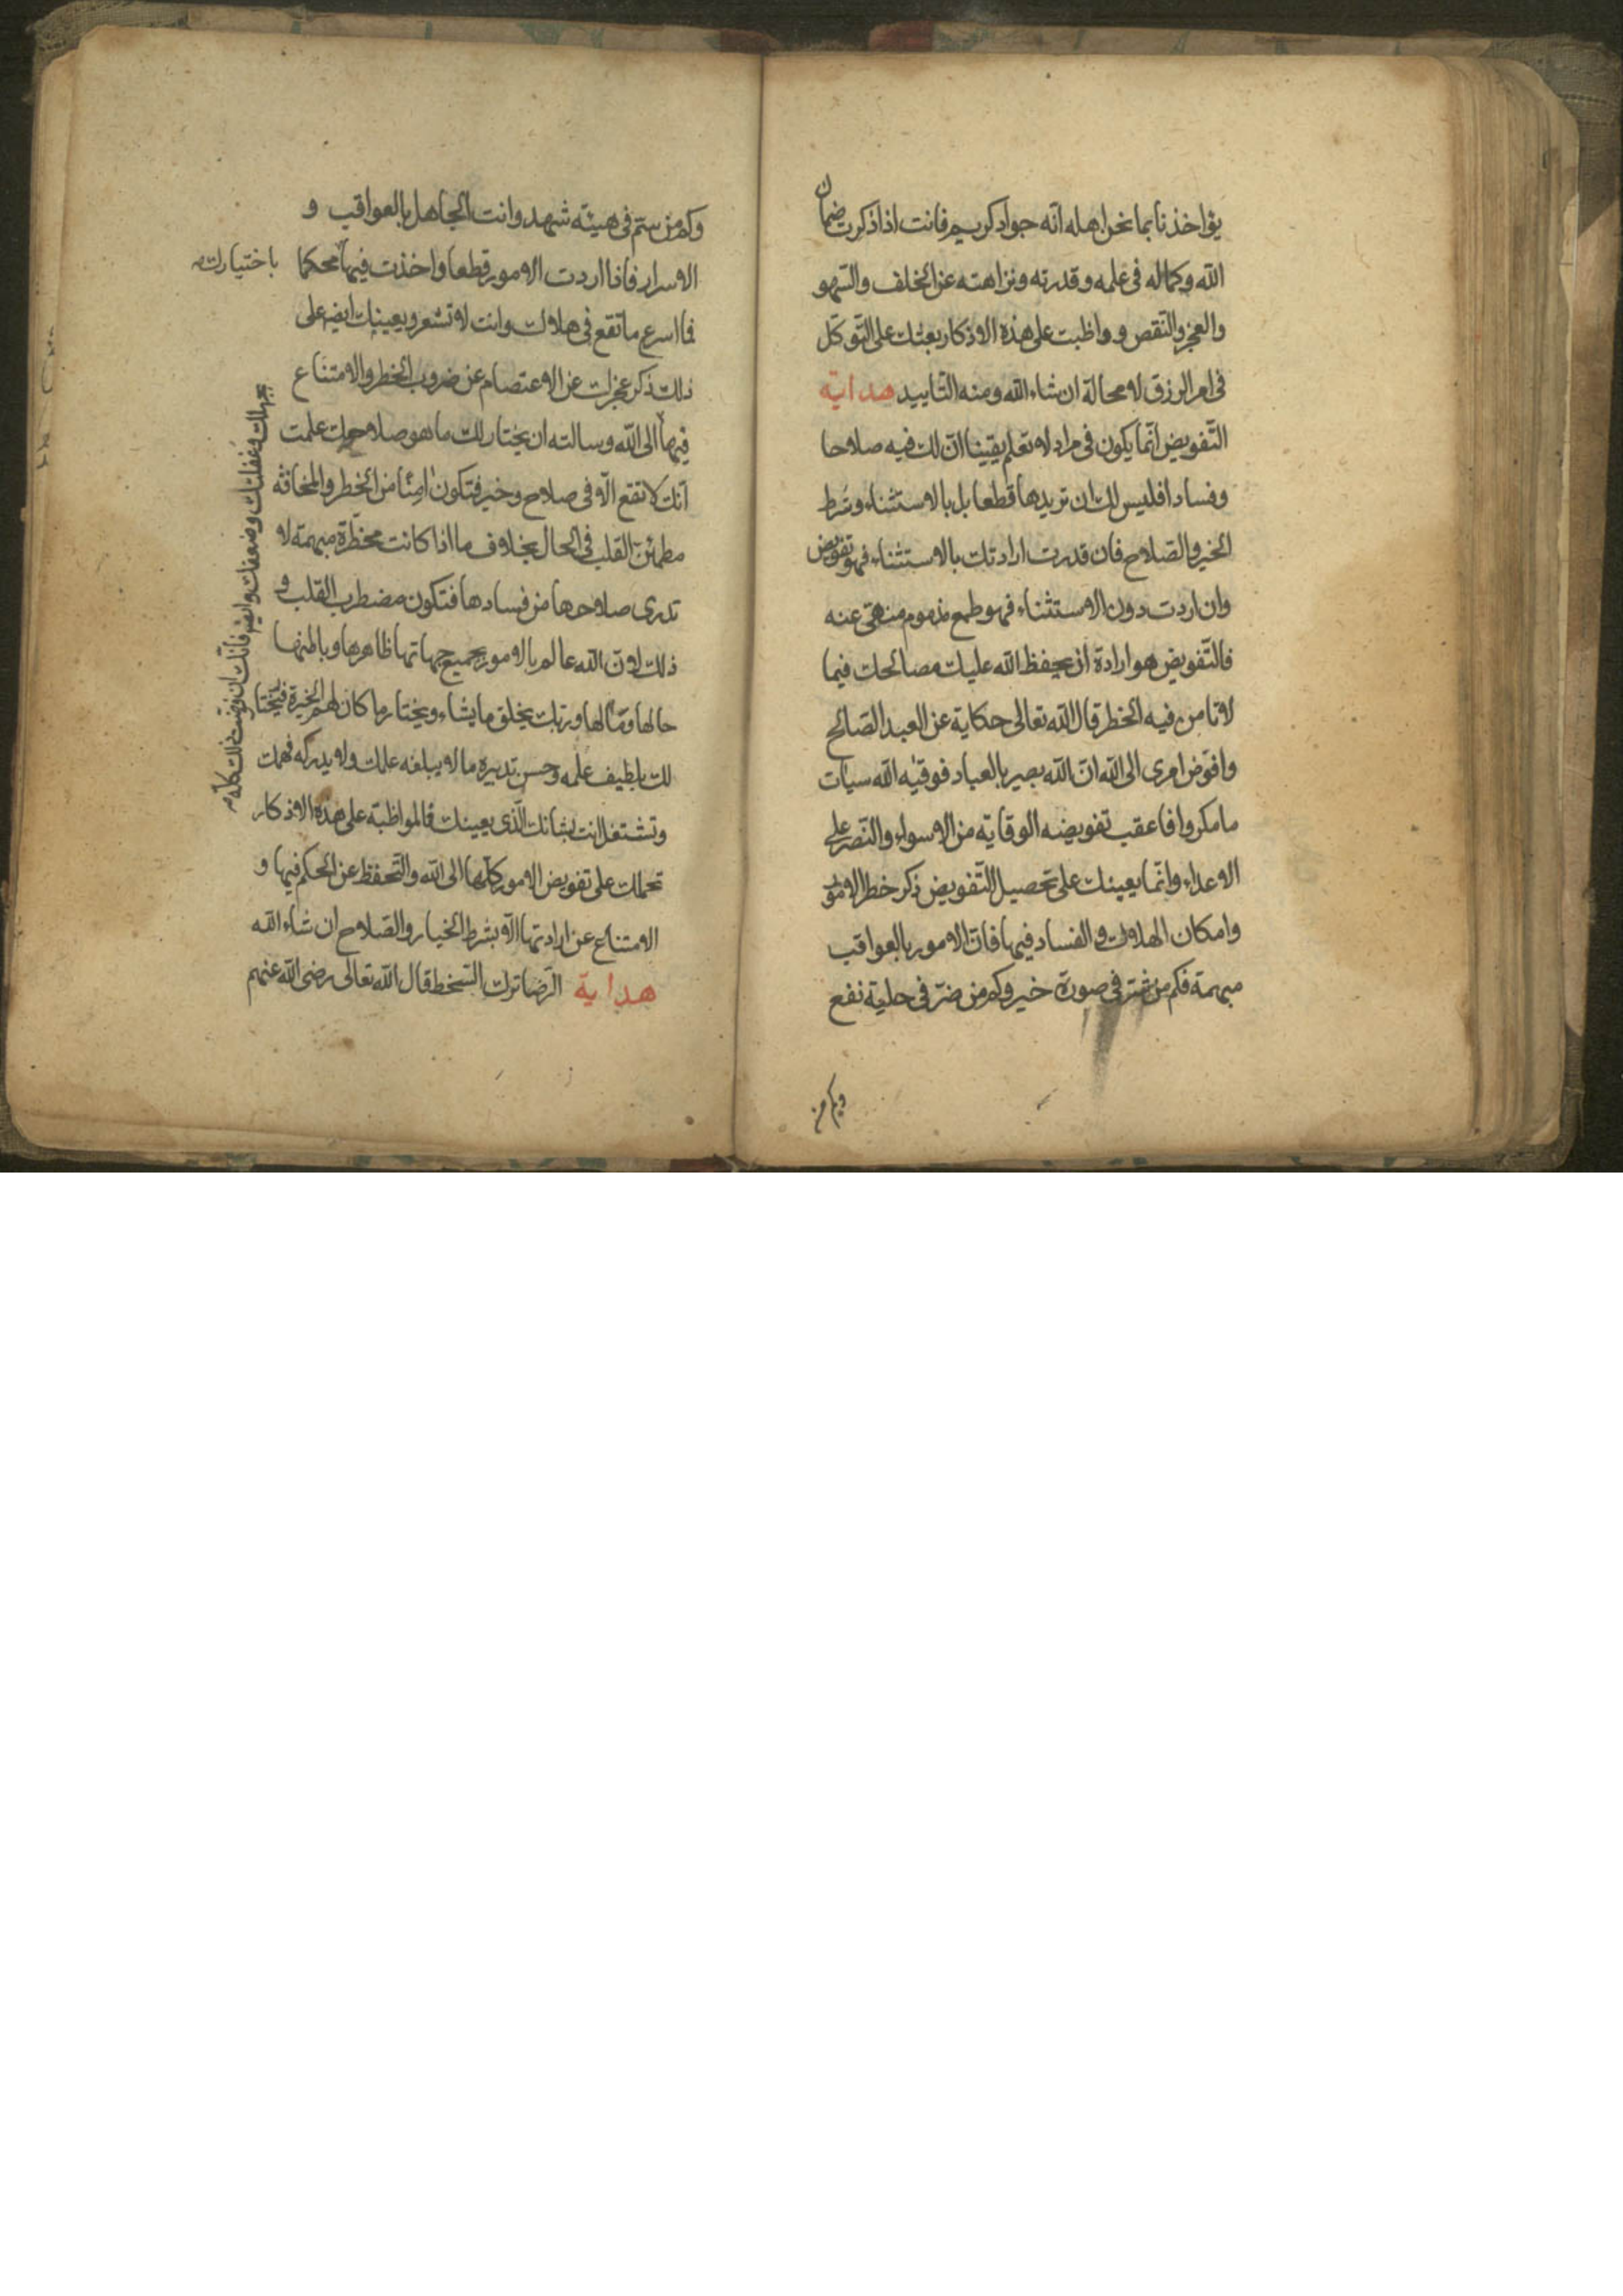 يؤاخذنا بما نحن اهله انه جواد كريم فانت اذا ذكرت ضمان
الله وكماله فى علمه وقدرته ونزاهته عن الخلف والسهو
والعجز والنقص و واظبت على هذه الاذكار بعثك على التوكل
فى امر الرزق لا محالة ان شاء الله ومنه التاييد هداية
التفويض انما يكون فى مراد لا تعلم يقينا ان لك فيه صلاحا
وفسادا فليس لك ان تريدها قطعا بل بالاستثناء وشرط
الخير والصلاح فان قدرت ارادتك بالاستثناء فهو تفويض
وان اردت دون الاستثناء فهو طمع مذموم منهى عنه
فالتفويض هو ارادة ان يحفظ الله عليك مصالحك فيما
لا تامن فيه الخطر قال الله تعالى حكاية عن العبد الصالح
وافوض امرى الى الله ان الله بصير بالعباد فوقيه الله سيات
ما مكروا فاعقب تفويضه الوقاية من الاسواء والنصر على
الاعداء وانما يعينك على تحصيل التفويض ذكر خطر الامور
وامكان الهلاك والفساد فيها فان الامور بالعواقب
مبهمة فكم من شر فى صورة خير وكم من ضر فى حلية نفع
وكم من
وكم من ستم فى هيئة شهد وانت الجاهل بالعواقب و
الاسرار فاذا اردت الامور قطعا واخذت فيها محكما باختيارك
فما اسرع ما تقع فى هلاك وانت لا تشعر ويعينك ايضا على
ذلك ذكر عجزك عن الاعتصام عن ضروب الخطر والامتناع
فيها الى الله وسالته ان يختار لك ما هو صلاحك علمت
انك لا تقع الا فى صلاح وخير فتكون امنا من الخطر والمخافة
مطمئن القلب فى الحال بخلاف ما اذا كانت مخطرة مبهمة لا
تدرى صلاحها من فسادها فتكون مضطرب القلب و
ذلك لان الله عالم بالامور بجميع جهاتها ظاهرها وباطنها
حالها ومآلها وربك يخلق ما يشاء ويختار ما كان لهم الخيرة فيختار
لك بلطيف علمه وحسن تدبيره ما لا يبلغه علمك ولا يدركه فهمك
وتشتغل انت بشانك الذى يعينك فالمواظبة على هذه الاذكار
تحملك على تفويض الامور كلها الى الله والتحفظ عن الحكم فيها و
الامتناع عن ارادتها الا بشرط الخيار والصلاح ان شاء الله
هداية الرضا ترك السخط قال الله تعالى رضى الله عنهم
بجهلك وغفلتك وضعفك
فانك ان فوضت ذلك كله